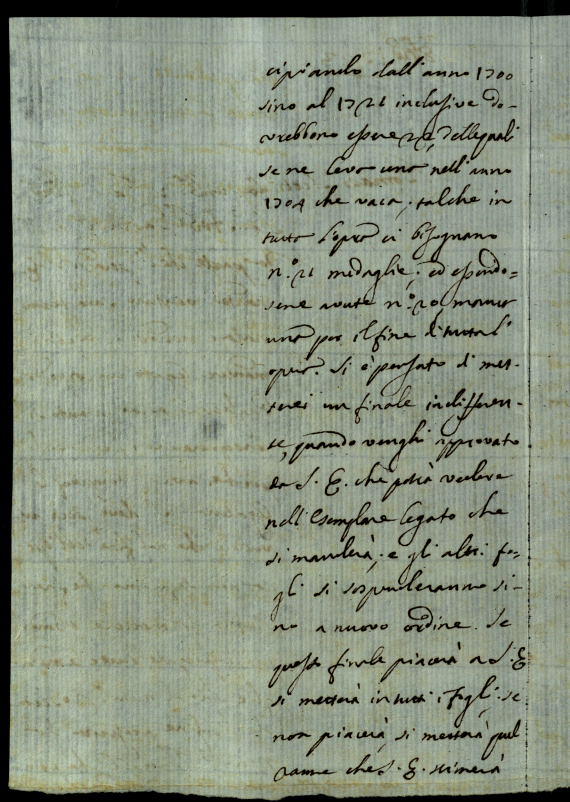 cipiando dall'anno 1700
sino al 1721 inclusive do-
vrebbono essere 22, delle quali
se ne leva una nell'anno
1704 che vaca; talche in
tutta l'opra ci bisognano
n.° 21 medaglie; ed essendo=
sene avute n.° 20, manca
una per il fine di tutta l'
opra. Si è pensato di met-
terci un finale indifferen-
te, quando venghi approvato
da S. E. che potrà vedere
nell'Esemplare legato che
si manderà; e gli altri fo=
gli si sospenderanno si-
no a nuovo ordine. Se
questo finale piacerà a S. E.
si metterà in tutti i fogli; se
non piacerà, si metterà quel
rame che S. E. stimerà